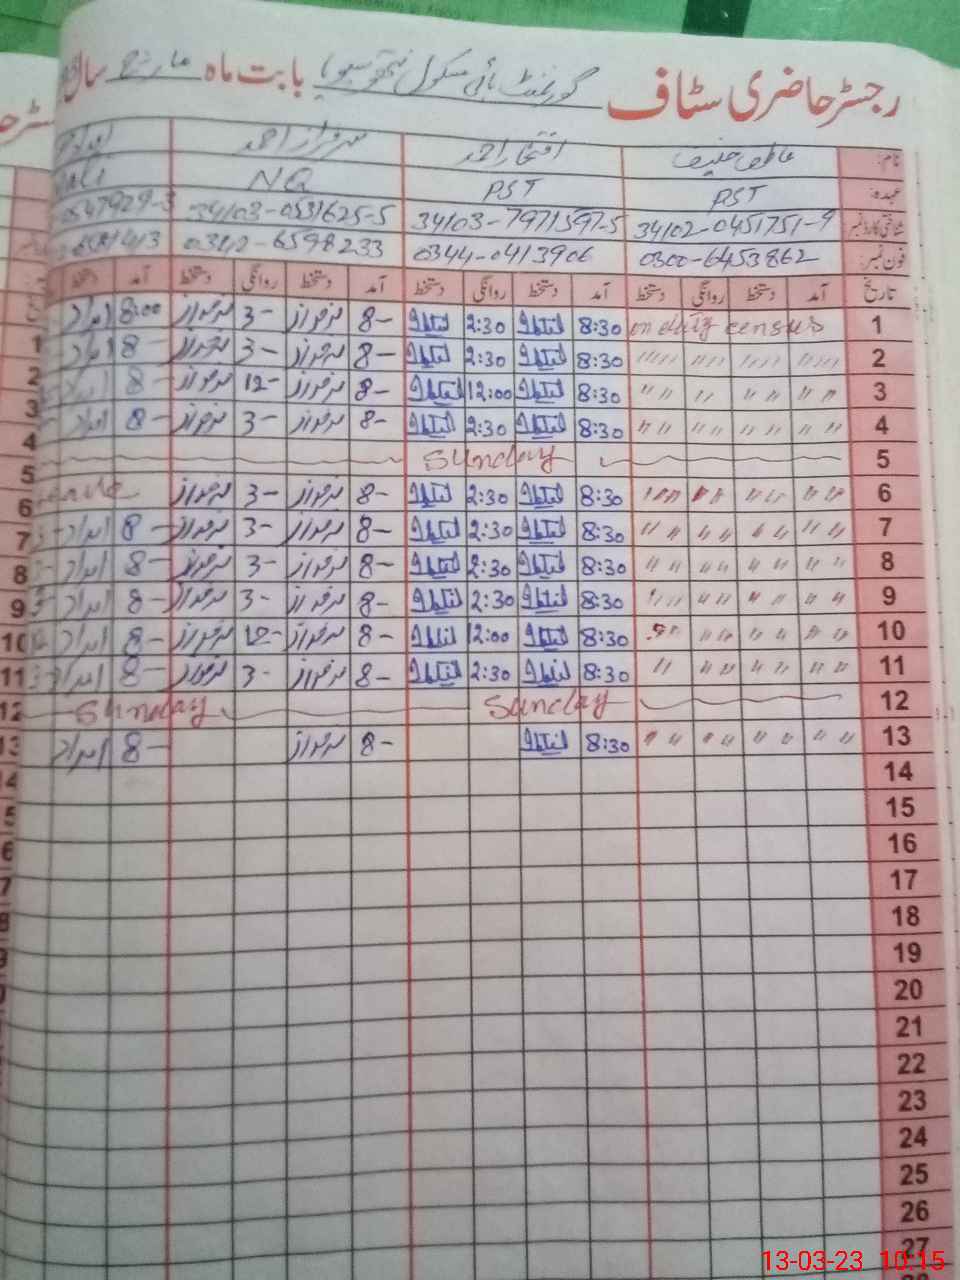 رجسٹر حاضری سٹاف گورنمنٹ ہائی سکول بابت ماہ مارچ سال
نام: عاطف حنیف افتخار احمد سرفراز احمد
عہدہ: PST PST NQ
شناختی کارڈ نمبر 34102-0451751-9 34103-7971597-5 34103-0531625-5
فون نمبر: 0300-6453862 0344-0413906 0342-6598233
تاریخ آمد دستخط روانگی دستخط آمد دستخط روانگی دستخط آمد دستخط روانگی دستخط آمد دستخط
1 on duty census 8:30 افتخار 2:30 افتخار 8- سرفراز 3- سرفراز 8:00 امداد
2 〃 〃 〃 〃 8:30 افتخار 2:30 افتخار 8- سرفراز 3- سرفراز 8 امداد
3 〃 〃 〃 〃 8:30 افتخار 12:00 افتخار 8- سرفراز 12- سرفراز 8- امداد
4 〃 〃 〃 〃 8:30 افتخار 2:30 افتخار 8- سرفراز 3- سرفراز 8- امداد
5 Sunday
6 〃 〃 〃 〃 8:30 افتخار 2:30 افتخار 8- سرفراز 3- سرفراز
7 〃 〃 〃 〃 8:30 افتخار 2:30 افتخار 8- سرفراز 3- سرفراز 8- امداد
8 〃 〃 〃 〃 8:30 افتخار 2:30 افتخار 8- سرفراز 3- سرفراز 8- امداد
9 〃 〃 〃 〃 8:30 افتخار 2:30 افتخار 8- سرفراز 3- سرفراز 8- امداد
10 〃 〃 〃 〃 8:30 افتخار 12:00 افتخار 8- سرفراز 12- سرفراز 8- امداد
11 〃 〃 〃 〃 8:30 افتخار 2:30 افتخار 8- سرفراز 3- سرفراز 8- امداد
12 Sunday Sunday
13 〃 〃 〃 〃 8:30 افتخار 8- سرفراز 8- امداد
14
15
16
17
18
19
20
21
22
23
24
25
26
27
13-03-23 10:15